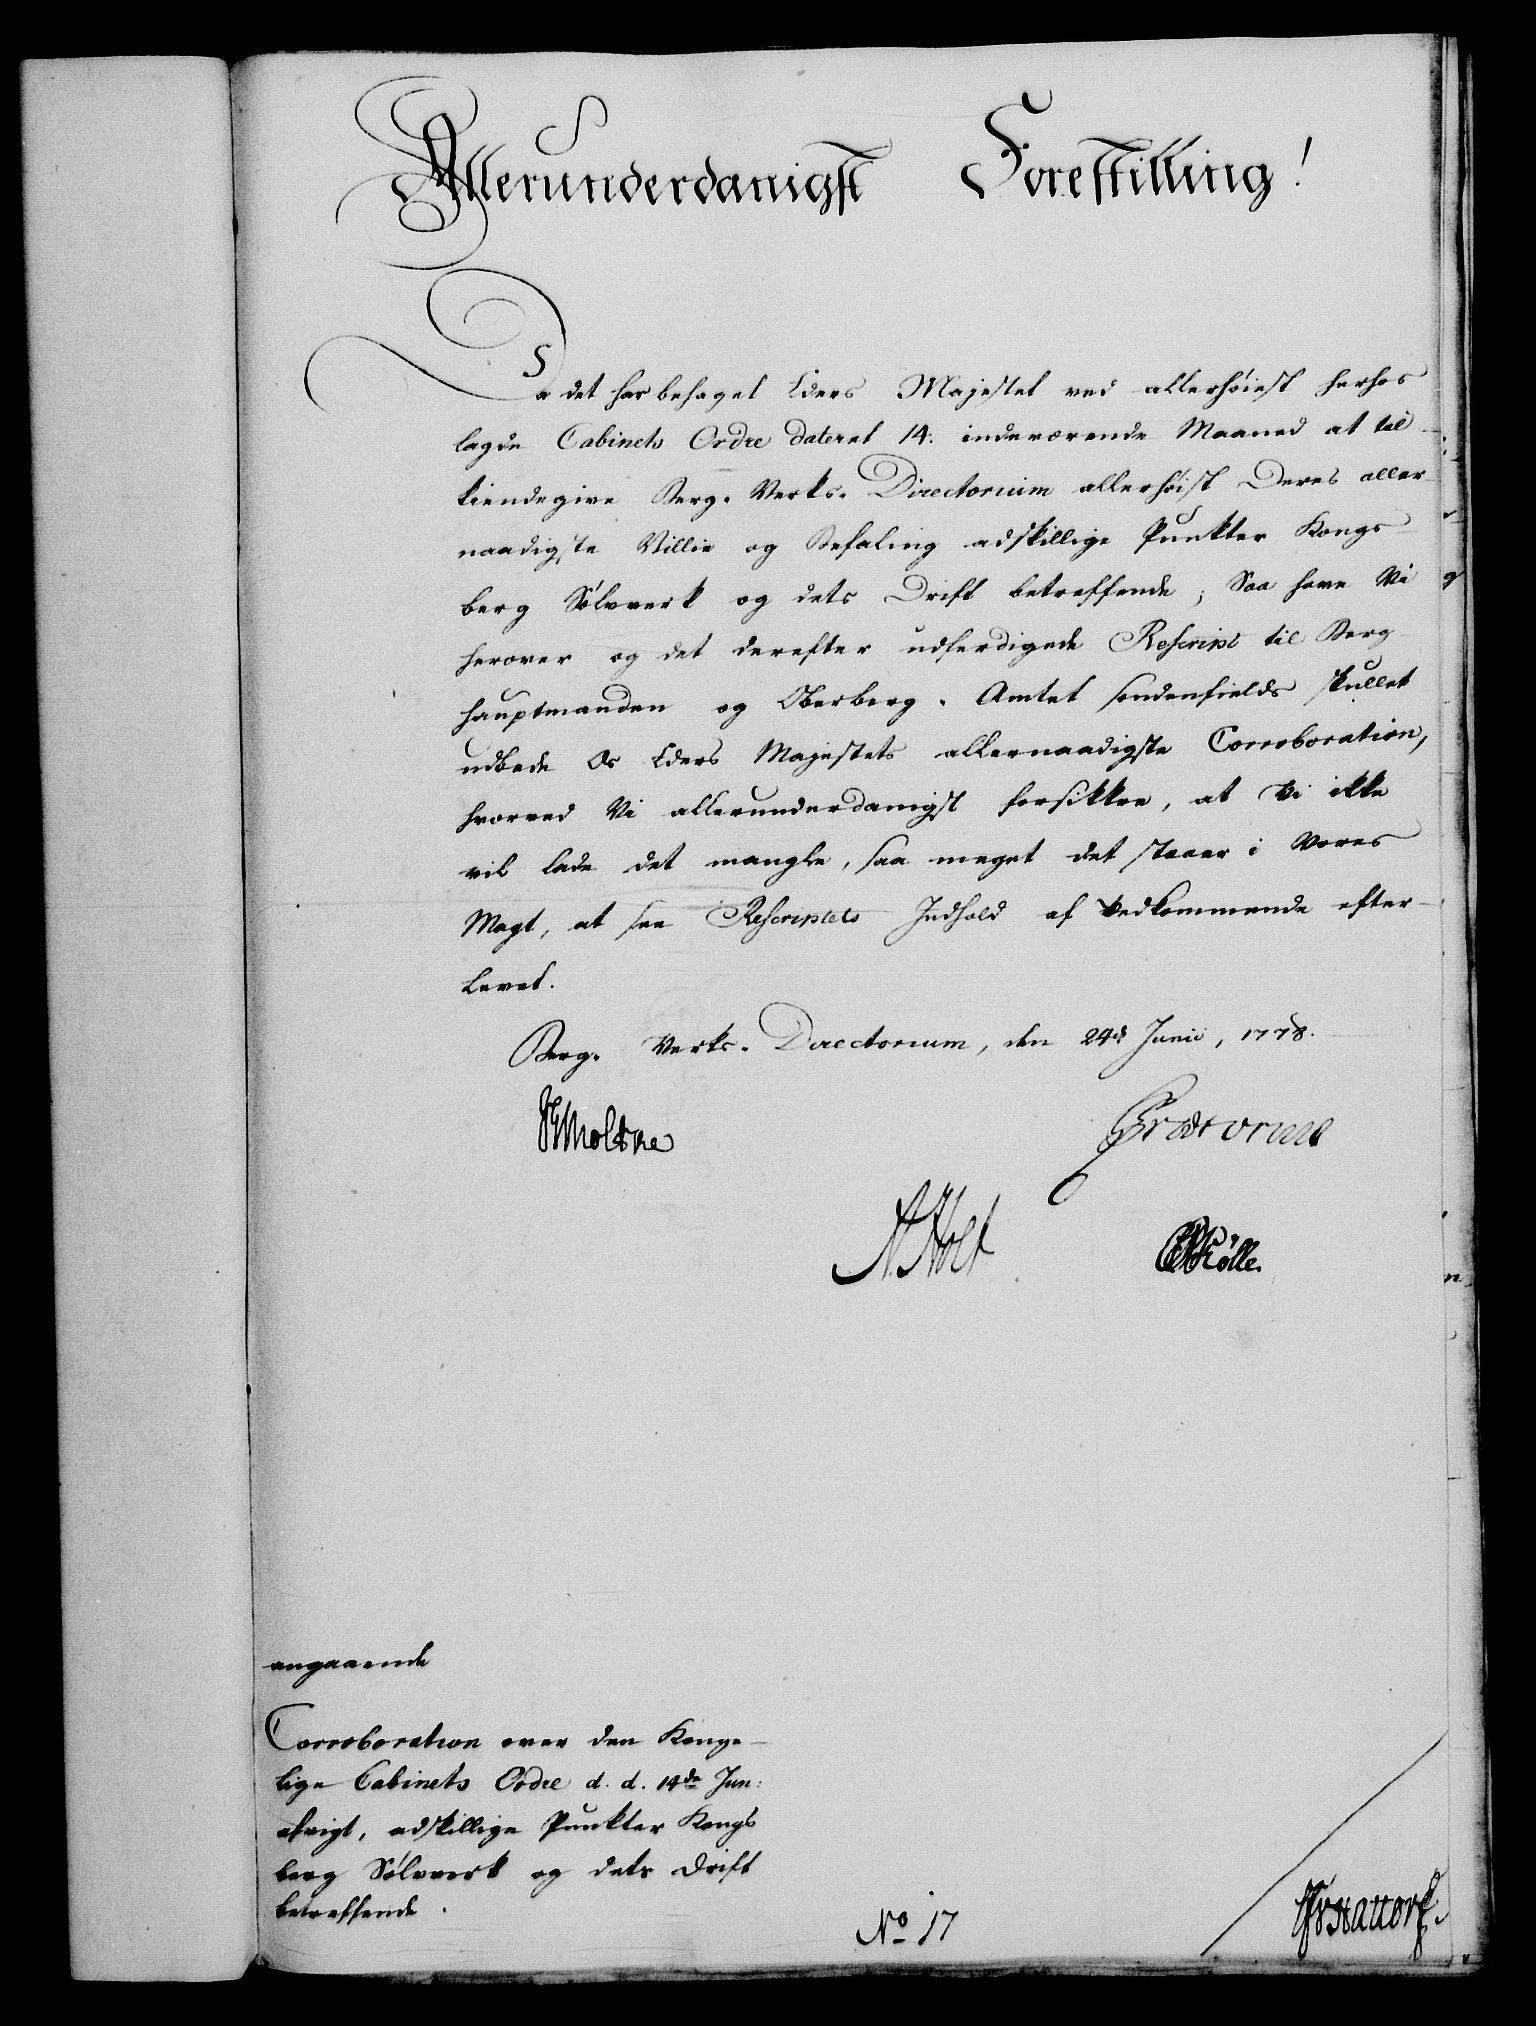 Allerunderdanigst Forestilling!
Da det har behaget Eders Majestet ved allerhøiest herhos
lagde Cabinets Ordre dateret 14. indeværende Maaned at til-
kiendegive Berg-Verks-Directorium allerhøist Deres aller-
naadigste Villie og Befaling adskillige Punkter Kongs-
berg Sølvverk og dets Drift betreffende; Saa have Vi
herover og det derefter udferdigede Rescript til Berg-
hauptmanden og Oberberg-Amtet søndenfields skullet
udbede Os Eders Majestets allernaadigste Corroboration,
hvorved Vi allerunderdanigst forsikkre, at Vi ikke
vil lade det mangle, saa meget det staaer i Vores
Magt, at see Rescriptets Indhold af Vedkommende efter-
levet.
Berg-Verks-Directorium, den 24d Junii, 1778.
Moltke Prætorius
A. Holt Kølle.
angaaende
Corroboration over den Konge-
lige Cabinets Ordre d. d. 14de Jun:
adskillige Punkter Kongs
berg Sølvverk og dets Drift
betreffende.
No 17